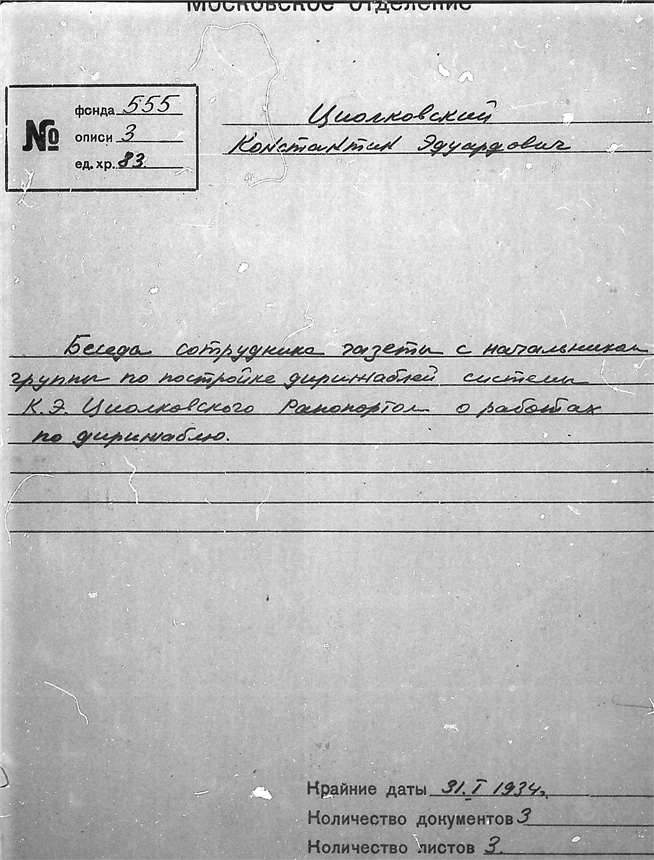 Московское отделение
№
фонда 555
описи 3
ед. хр. 83
Циолковский
Константин Эдуардович
Беседа сотрудника газеты с начальником
группы по постройке дирижаблей системы
К.Э. Циолковского Рапопортом о работах
по дирижаблю.
Крайние даты 31.I 1934г.
Количество документов 3
Количество листов 3.